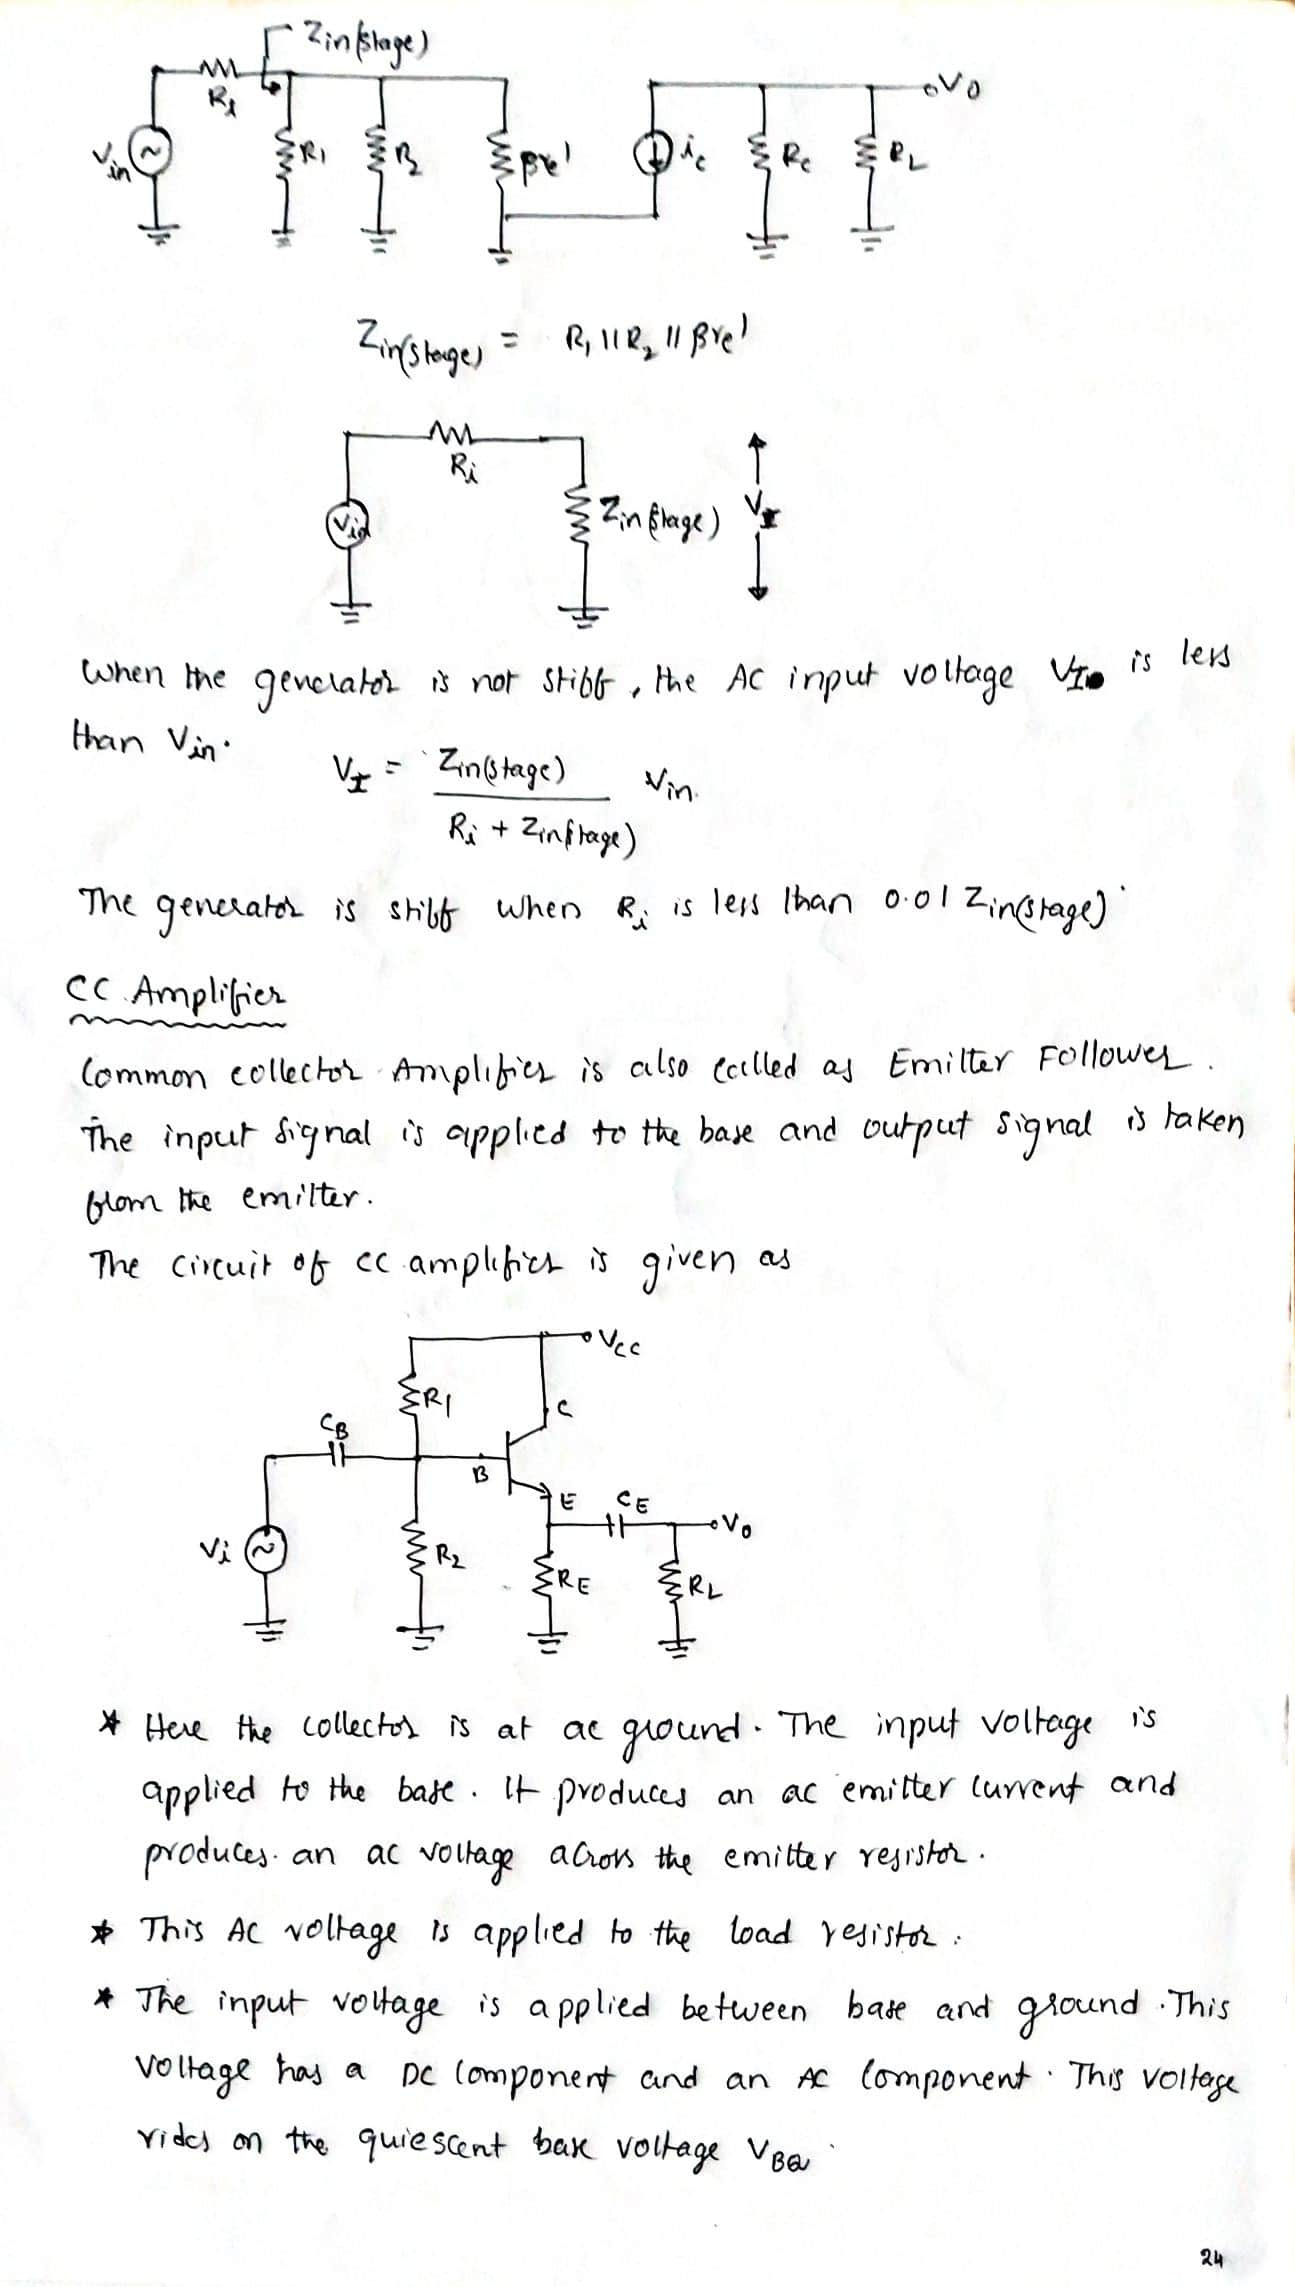 Zin(stage)
Ri
Vin
R1
R2
βre'
ic
Rc
RL
Vo
Zin(stage) = R1 || R2 || βre'
Ri
Vin
Zin(stage)
VI
When the generator is not stiff, the AC input voltage VI is less
than Vin.
VI = Zin(stage) Vin.
Ri + Zin(stage)
The generator is stiff when Ri is less than 0.01 Zin(stage).
CC Amplifier
Common collector Amplifier is also called as Emitter Follower.
The input signal is applied to the base and output signal is taken
from the emitter.
The circuit of cc amplifier is given as
VCC
R1
C
CB
B
E
CE
Vo
Vi
R2
RE
RL
* Here the collector is at ac ground. The input voltage is
applied to the base. It produces an ac emitter current and
produces an ac voltage across the emitter resistor.
* This AC voltage is applied to the load resistor.
* The input voltage is applied between base and ground. This
voltage has a DC component and an AC component. This voltage
rides on the quiescent base voltage VBQ.
24